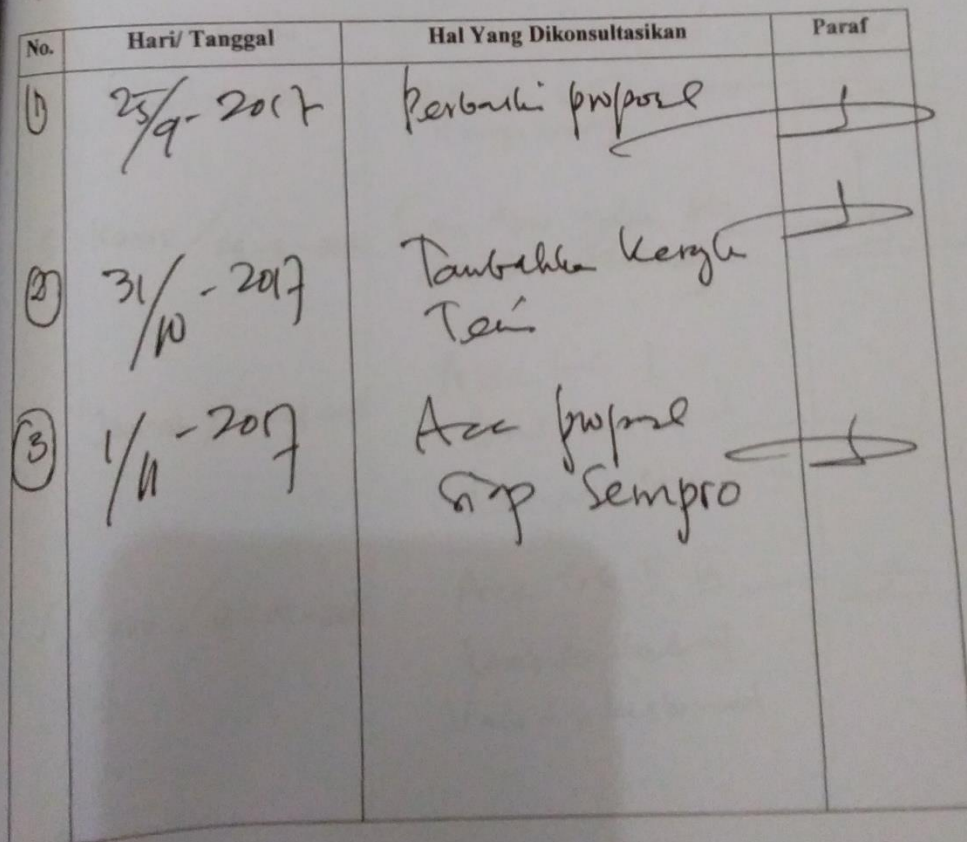 No. Hari/ Tanggal Hal Yang Dikonsultasikan Paraf
1 25/9 - 2017 Perbaiki proposal
2 31/10 - 2017 Tambahkan
Teori
3 1/11 - 2017 Acc proposal
siap Sempro